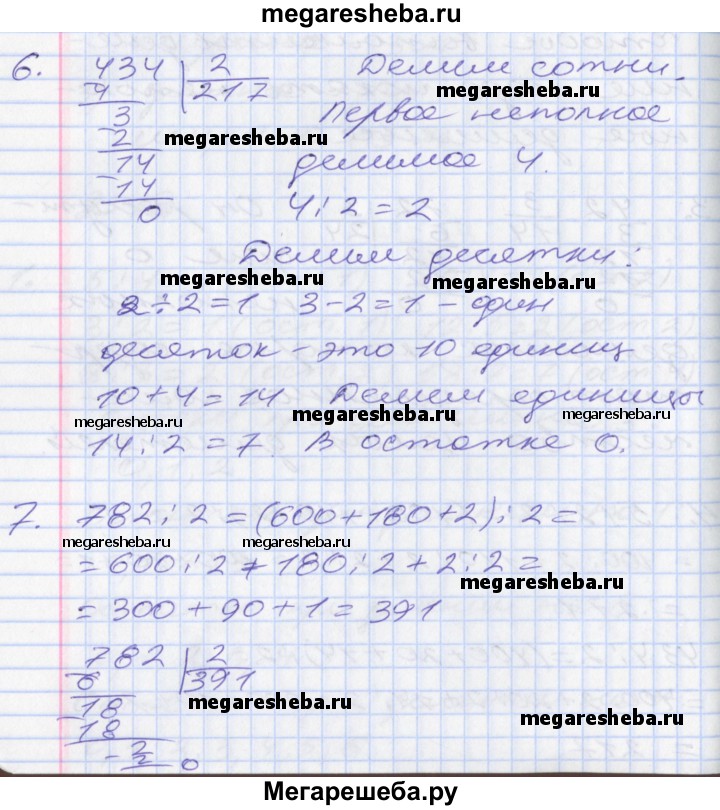 megaresheba.ru
6. 434 | 2 Делим сотни.
4 217 megaresheba.ru
3 Первое неполное
2 megaresheba.ru
14 делимое 4.
14
0 4 : 2 = 2
Делим десятки:
megaresheba.ru megaresheba.ru
2 ÷ 2 = 1 3 - 2 = 1 - один
десяток - это 10 единиц
10 + 4 = 14 Делим единицы
megaresheba.ru megaresheba.ru megaresheba.ru
14 : 2 = 7. В остатке 0.
7. 782 : 2 = (600 + 180 + 2) : 2 =
megaresheba.ru megaresheba.ru
= 600 : 2 + 180 : 2 + 2 : 2 =
megaresheba.ru
= 300 + 90 + 1 = 391
782 | 2
6 391
18 megaresheba.ru
18 megaresheba.ru
- 2
2 0
Мегарешеба.ру